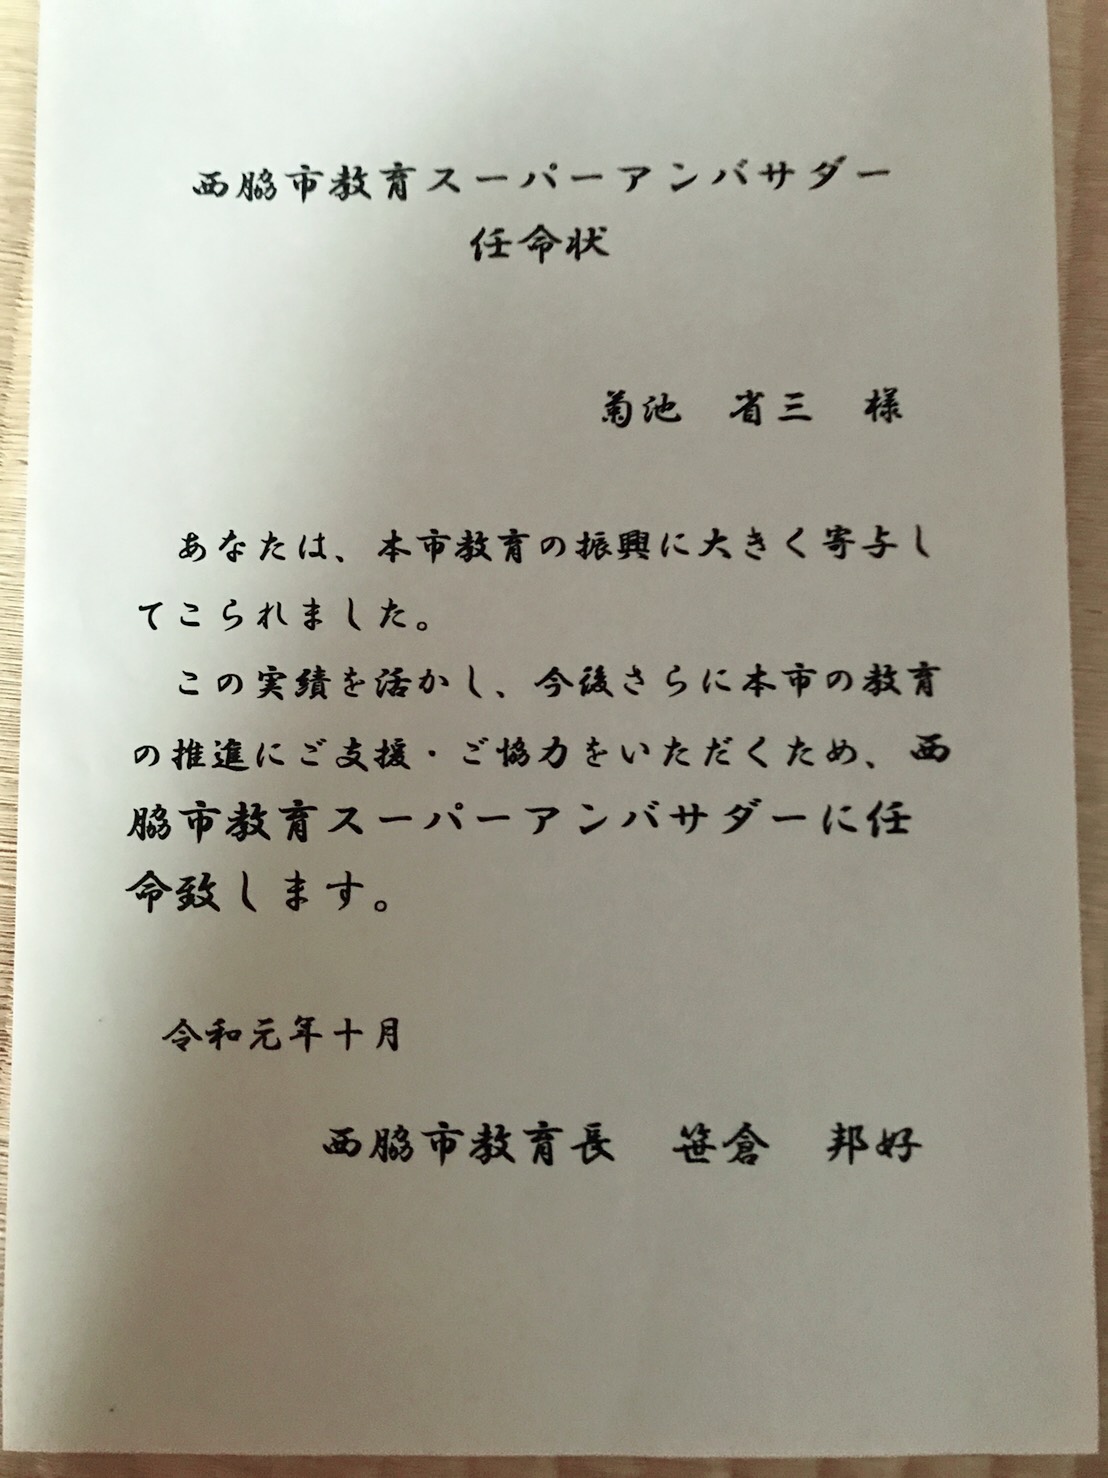 西脇市教育スーパーアンバサダー
任命状
菊池　省三　様
あなたは、本市教育の振興に大きく寄与し
てこられました。
この実績を活かし、今後さらに本市の教育
の推進にご支援・ご協力をいただくため、西
脇市教育スーパーアンバサダーに任
命致します。
令和元年十月
西脇市教育長　笹倉　邦好